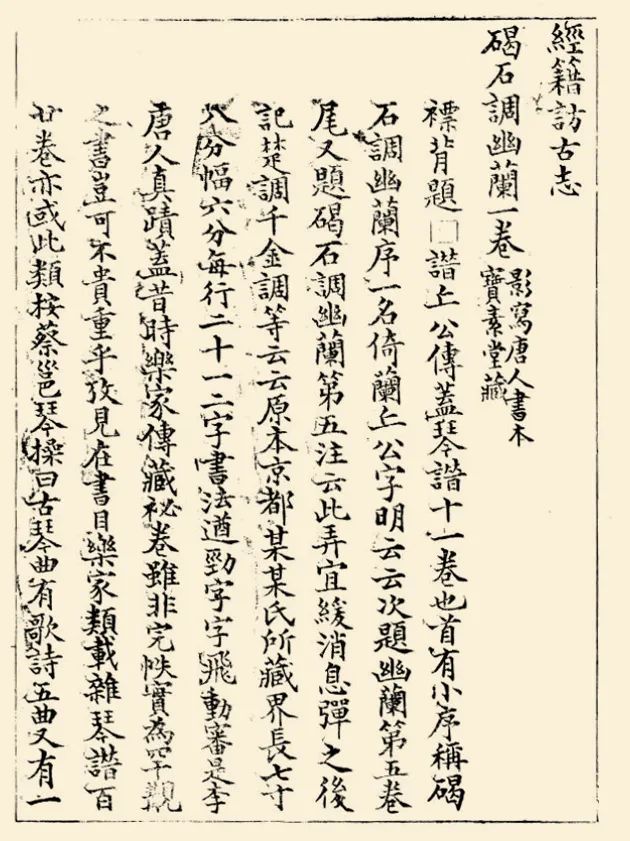 經籍訪古志
碣石調幽蘭一卷 影寫唐人書本 寶素堂藏
褾背題□譜丘公傳蓋琴譜十一卷也首有小序稱碣
石調幽蘭序一名倚蘭丘公字明云云次題幽蘭第五卷
尾又題碣石調幽蘭第五注云此弄宜緩消息彈之後
記楚調千金調等云云原本京都某某氏所藏界長七寸
八分幅六分每行二十一二字書法遒勁字字飛動審是李
唐人真蹟蓋昔時樂家傳藏祕卷雖非完帙實為罕觀
之書豈可不貴重乎攷見在書目樂家類載雜琴譜百
廿卷亦或此類桉蔡邕琴操曰古琴曲有歌詩五曲又有一